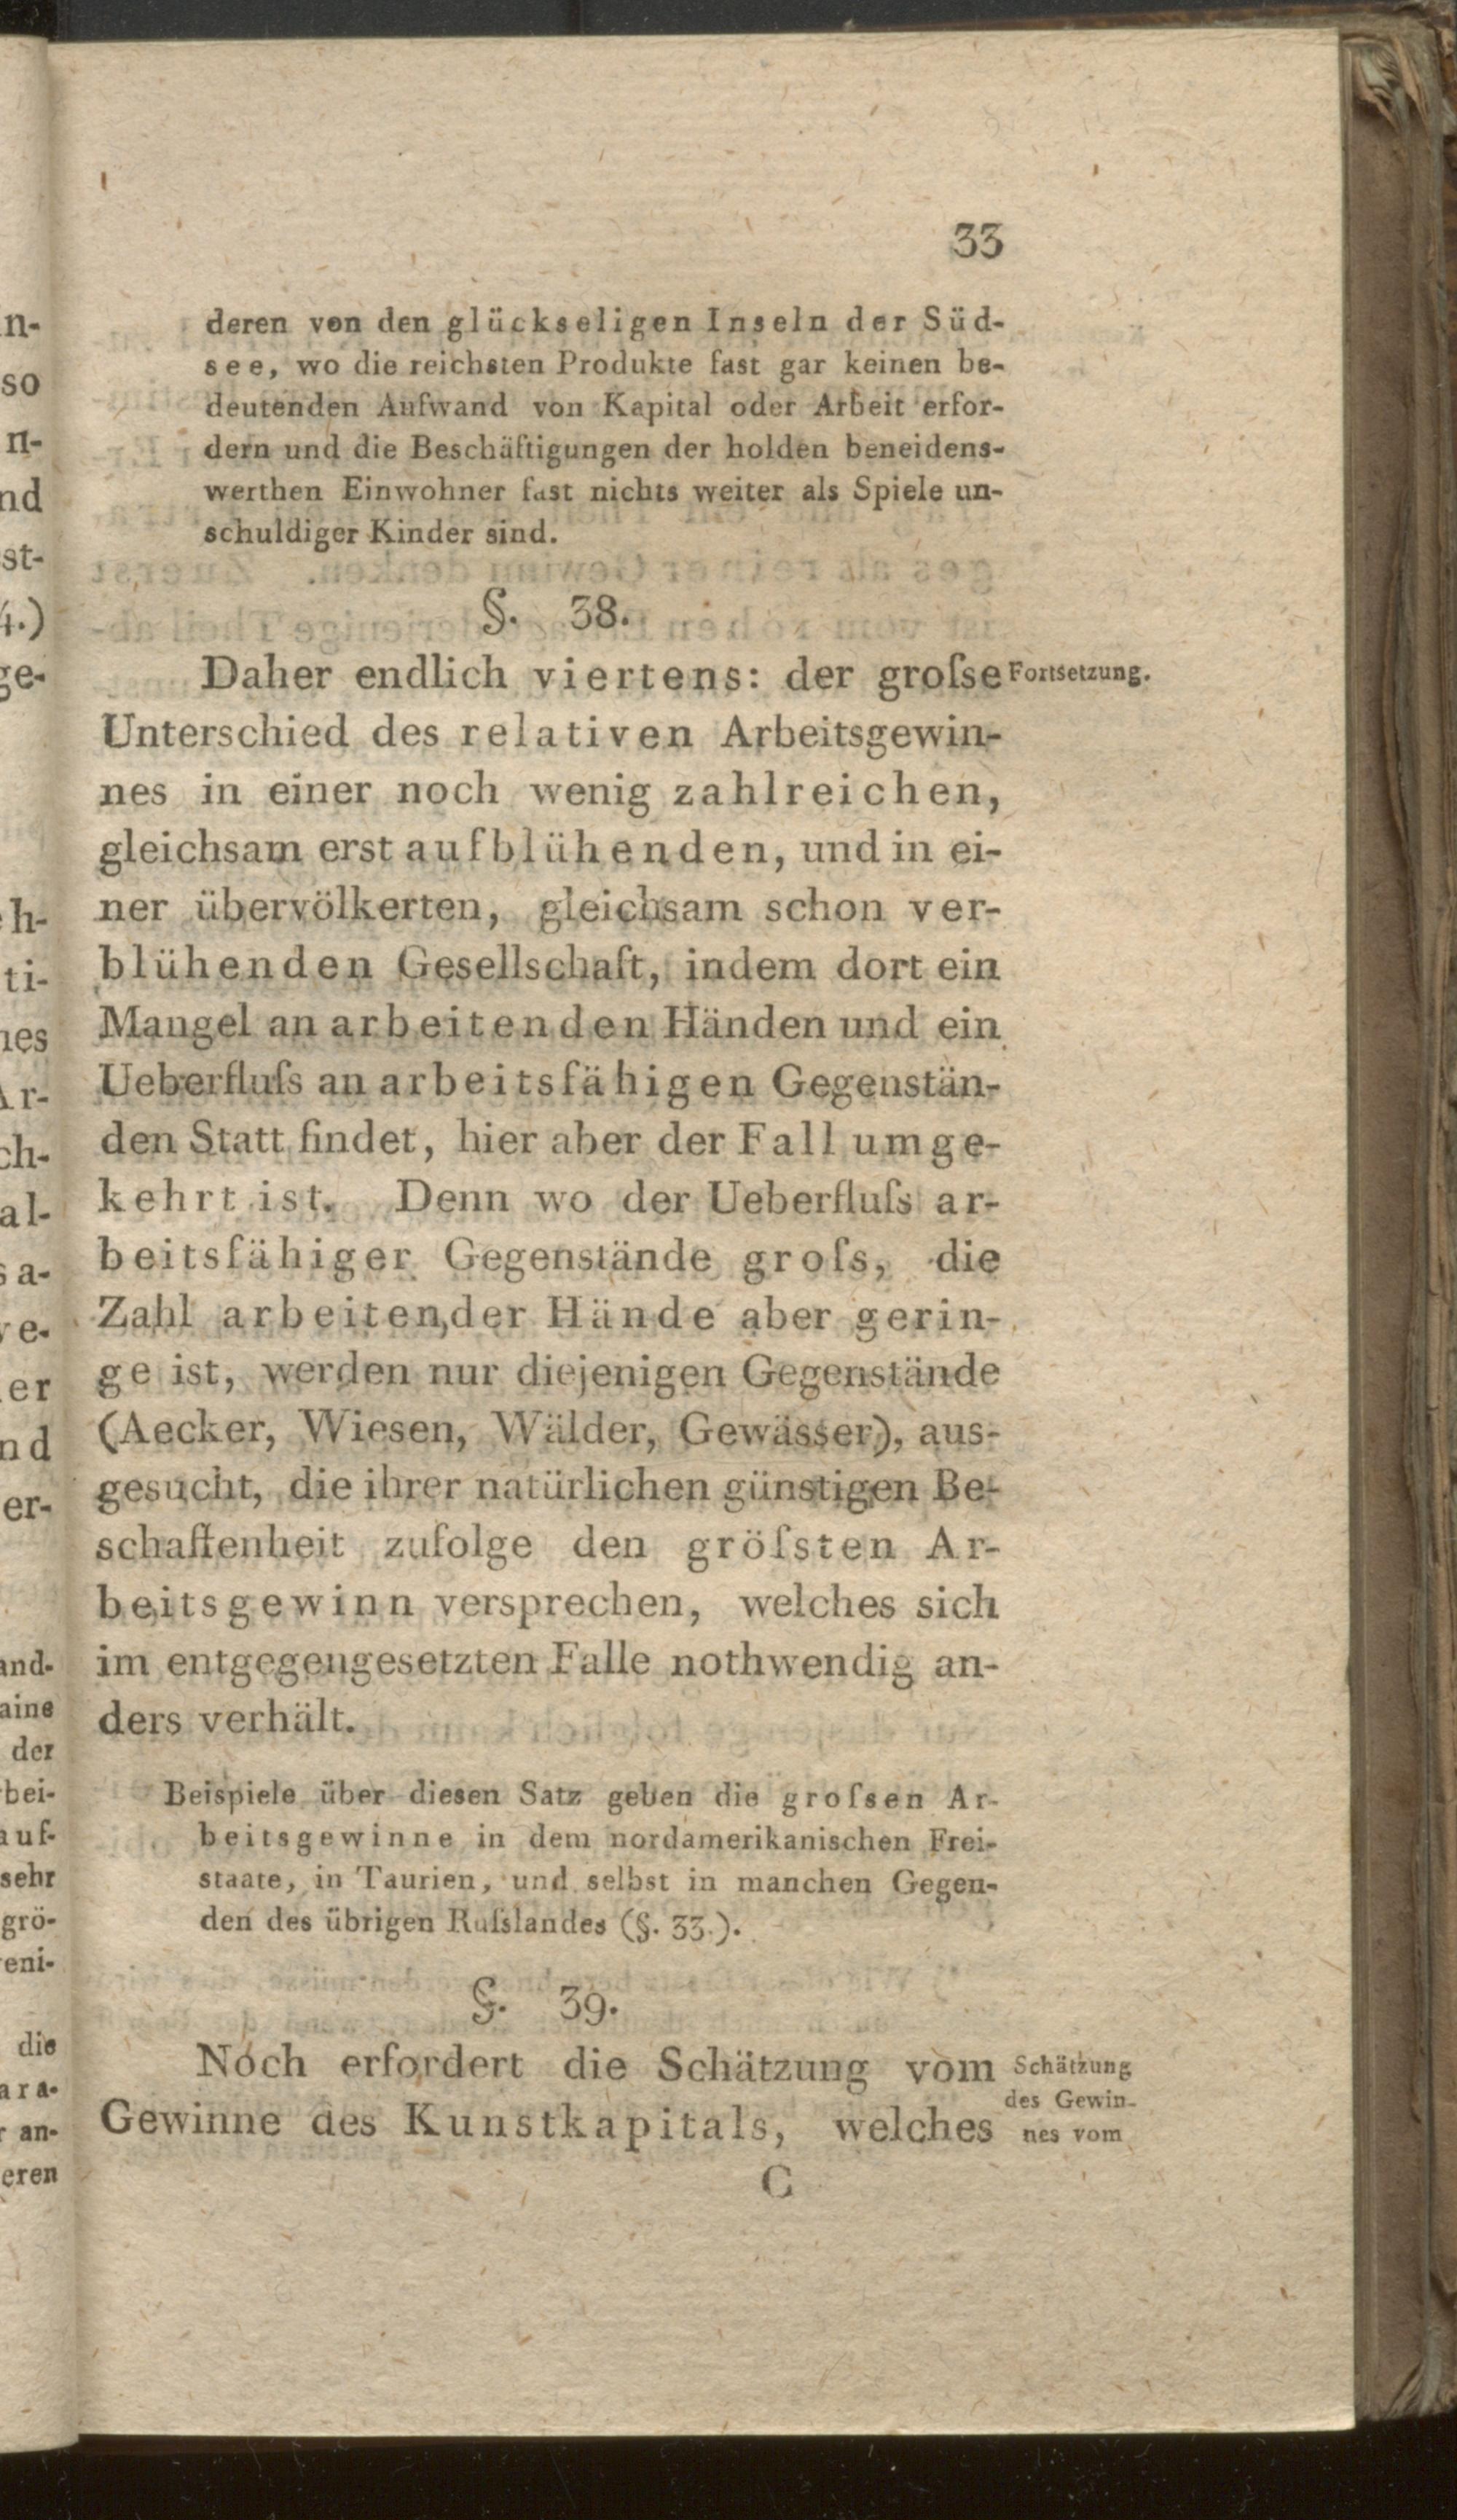 33
deren von den glückseligen Inseln der Süd-
see, wo die reichsten Produkte fast gar keinen be-
deutenden Aufwand von Kapital oder Arbeit erfor-
dern und die Beschäftigungen der holden beneidens-
werthen Einwohner fast nichts weiter als Spiele un-
schuldiger Kinder sind.
§. 38.
Daher endlich viertens: der groſse
Fortsetzung.
Unterschied des relativen Arbeitsgewin-
nes in einer noch wenig zahlreichen,
gleichsam erst aufblühenden, und in ei-
ner übervölkerten, gleichsam schon ver-
blühenden Gesellschaft, indem dort ein
Mangel an arbeitenden Händen und ein
Ueberfluſs an arbeitsfähigen Gegenstän-
den Statt findet, hier aber der Fall umge-
kehrt ist. Denn wo der Ueberfluſs ar-
beitsfähiger Gegenstände groſs, die
Zahl arbeitender Hände aber gerin-
ge ist, werden nur diejenigen Gegenstände
(Aecker, Wiesen, Wälder, Gewässer), aus-
gesucht, die ihrer natürlichen günstigen Be-
schaffenheit zufolge den gröſsten Ar-
beitsgewinn versprechen, welches sich
im entgegengesetzten Falle nothwendig an-
ders verhält.
Beispiele über diesen Satz geben die groſsen Ar-
beitsgewinne in dem nordamerikanischen Frei-
staate, in Taurien, und selbst in manchen Gegen-
den des übrigen Ruſslandes (§. 33.).
§. 39.
Noch erfordert die Schätzung vom
Gewinne des Kunstkapitals, welches
Schätzung
des Gewin-
nes vom
C